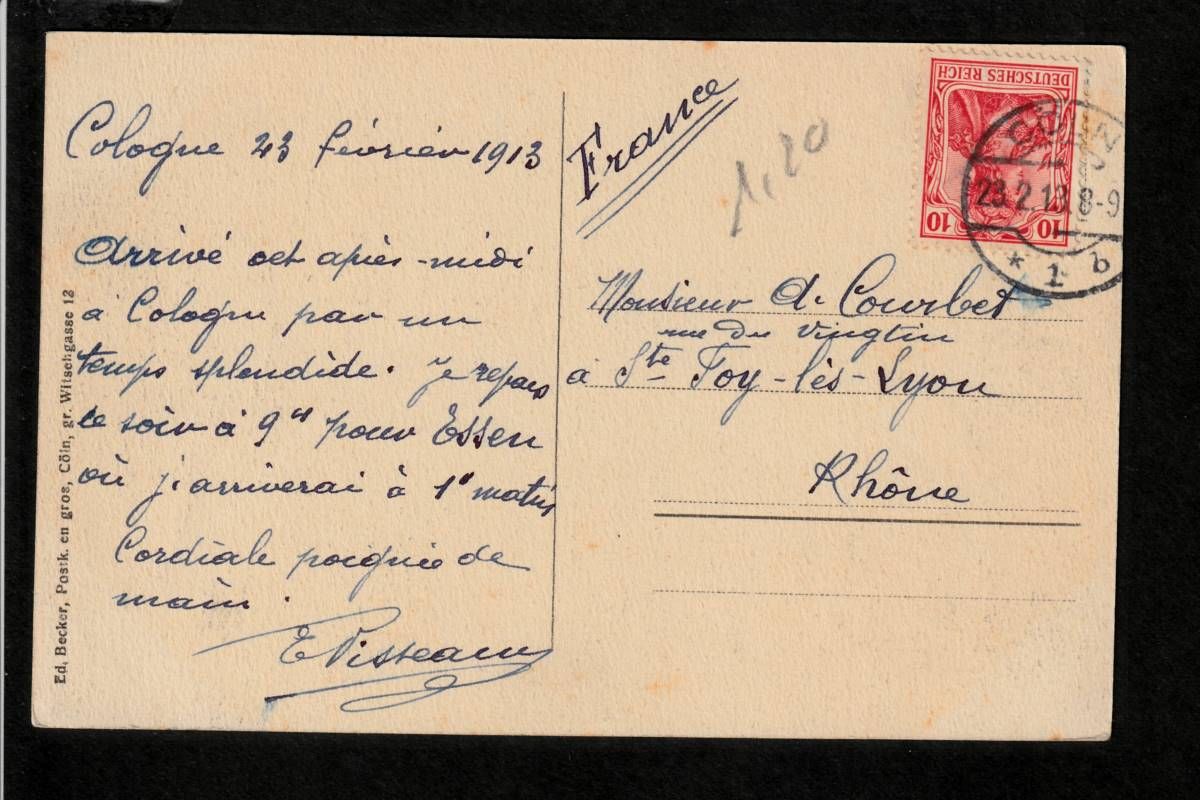 Cologne 23 février 1913
Arrivé cet après-midi
à Cologne par un
temps splendide. Je repars
ce soir à 9h pour Essen
où j'arriverai à 1h matin
Cordiale poignée de
main.
Ed. Becker, Postk. en gros, Cöln, gr. Witschgasse 12
France
1,20
DEUTSCHES REICH
10 10
CÖLN
23.2.13. 8-9
* 1 b
Monsieur A. Courbet
rue du Vingtin
à Ste Foy-lès-Lyon
Rhône